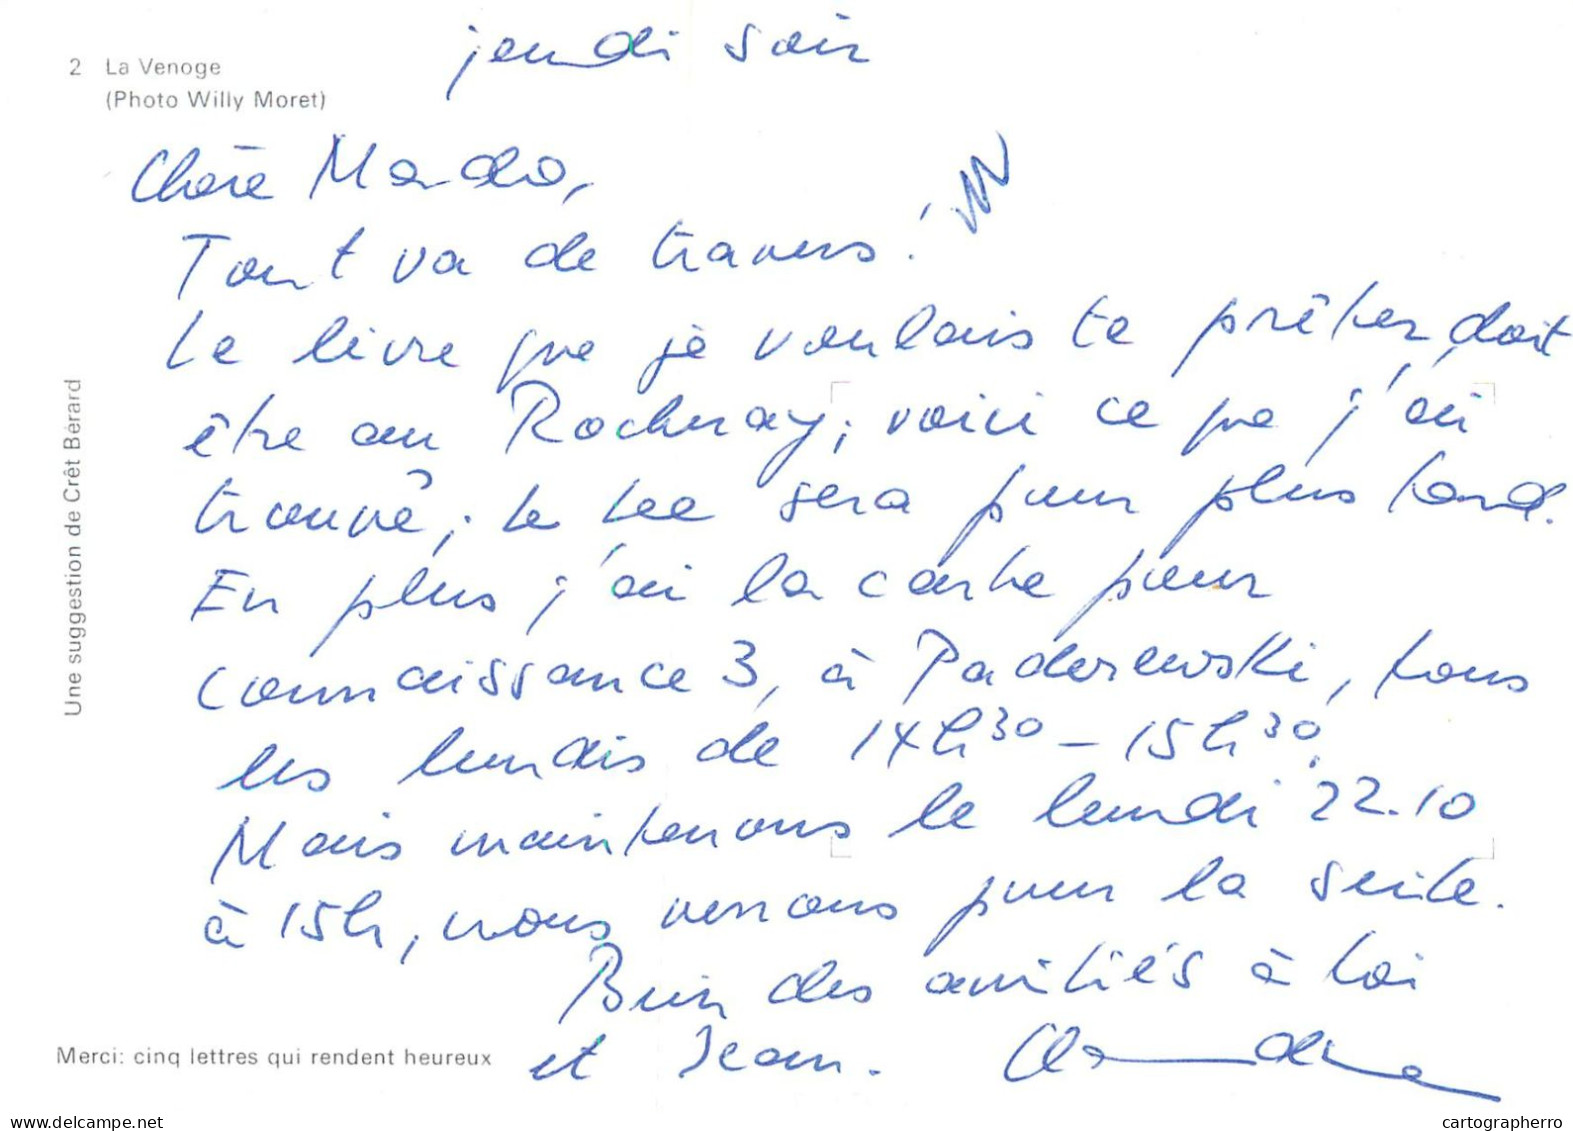 jeudi soir
2 La Venoge
(Photo Willy Moret)
Chère Mado,
Tout va de travers!
Le livre que je voulais te prêter doit
être au Rocheray; voici ce que j'ai
trouvé; le tee sera pour plus tard.
En plus j'ai la carte pour
connaissance 3, à Paderewski, tous
les lundis de 14h30 – 15h30.
Mais maintenons le lundi 22.10
à 15h, nous verrons pour la suite.
Bien des amitiés à toi
et Jean.
Une suggestion de Crêt Bérard
Merci: cinq lettres qui rendent heureux
www.delcampe.net
cartographerro